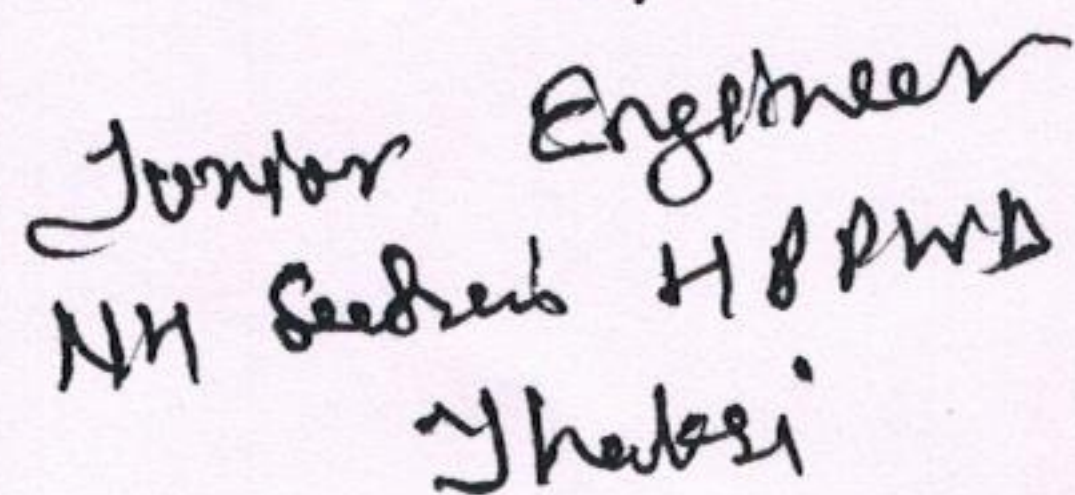 Junior Engineer
NH Section HPPWD
Jhakri